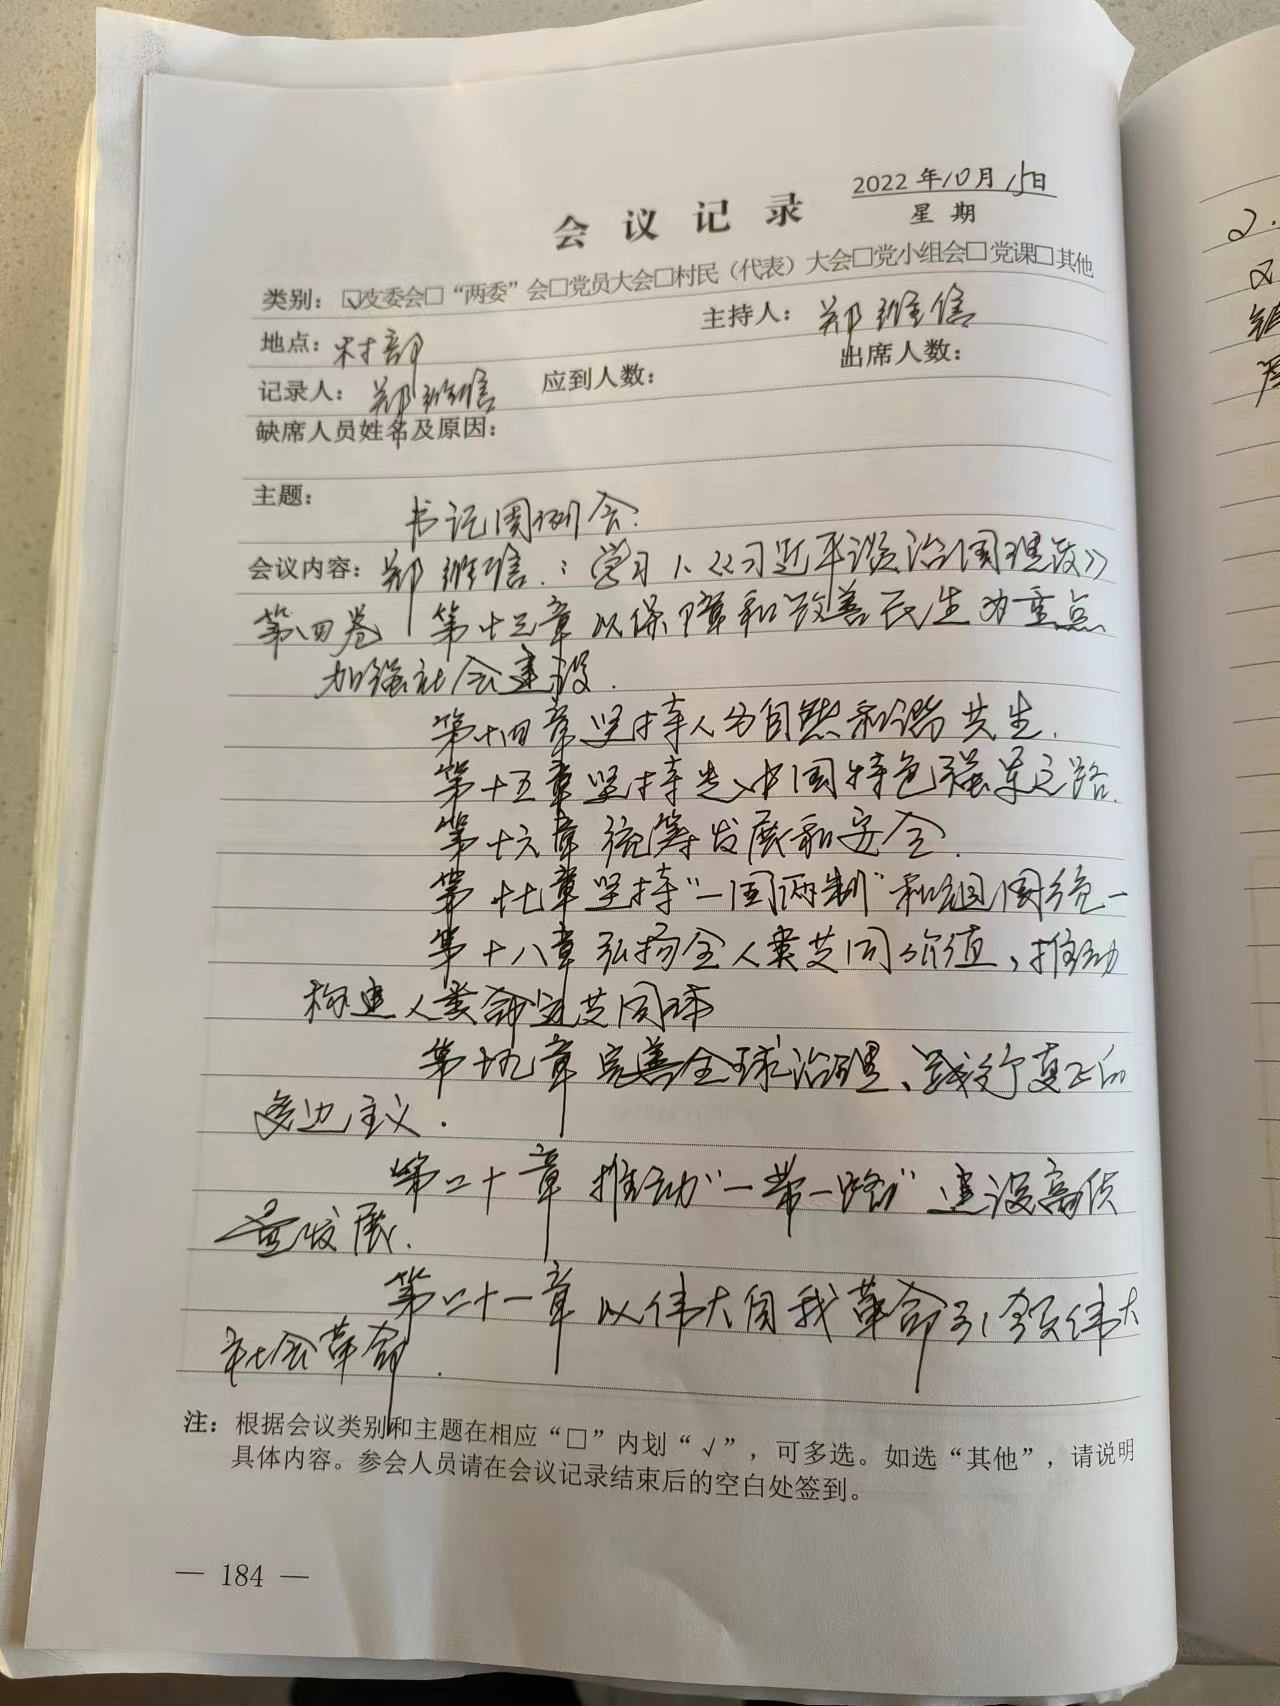 2022 年10月15日
会 议 记 录
星 期
类别：☑支委会□“两委”会□党员大会□村民（代表）大会□党小组会□党课□其他
地点：村部 主持人：郑维信
记录人：郑维信 应到人数： 出席人数：
缺席人员姓名及原因：
主题：
书记周例会.
会议内容：郑维信：学习1、《习近平谈治国理政》
第四卷 第十三章以保障和改善民生为重点
加强社会建设.
第十四章坚持人与自然和谐共生.
第十五章坚持走中国特色强军之路.
第十六章统筹发展和安全.
第十七章坚持“一国两制”和祖国统一
第十八章弘扬全人类共同价值、推动
构建人类命运共同体
第十九章完善全球治理、践行真正的
多边主义.
第二十章 推动“一带一路”建设高质
量发展.
第二十一章 以伟大自我革命引领伟大
社会革命.
注：根据会议类别和主题在相应“□”内划“√”，可多选。如选“其他”，请说明
具体内容。参会人员请在会议记录结束后的空白处签到。
— 184 —
2.